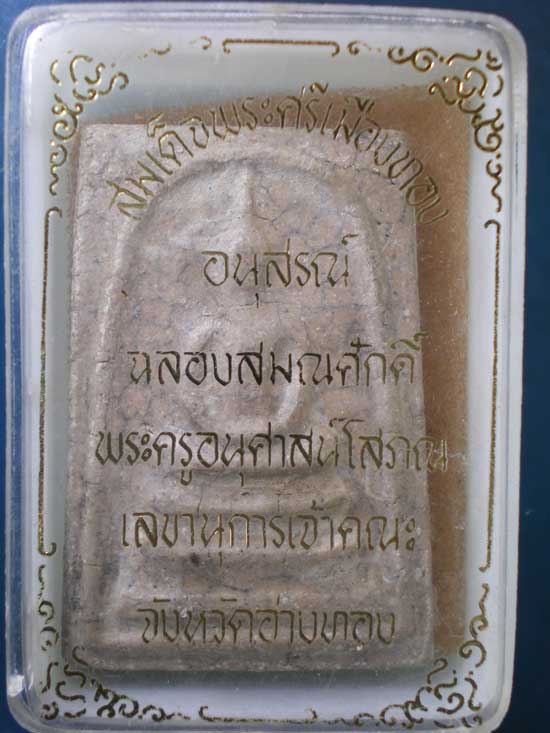 สมเด็จพระศรีเมืองทอง
อนุสรณ์
ฉลองสมณศักดิ์
พระครูอนุศาสน์โสภณ
เลขานุการเจ้าคณะ
จังหวัดอ่างทอง